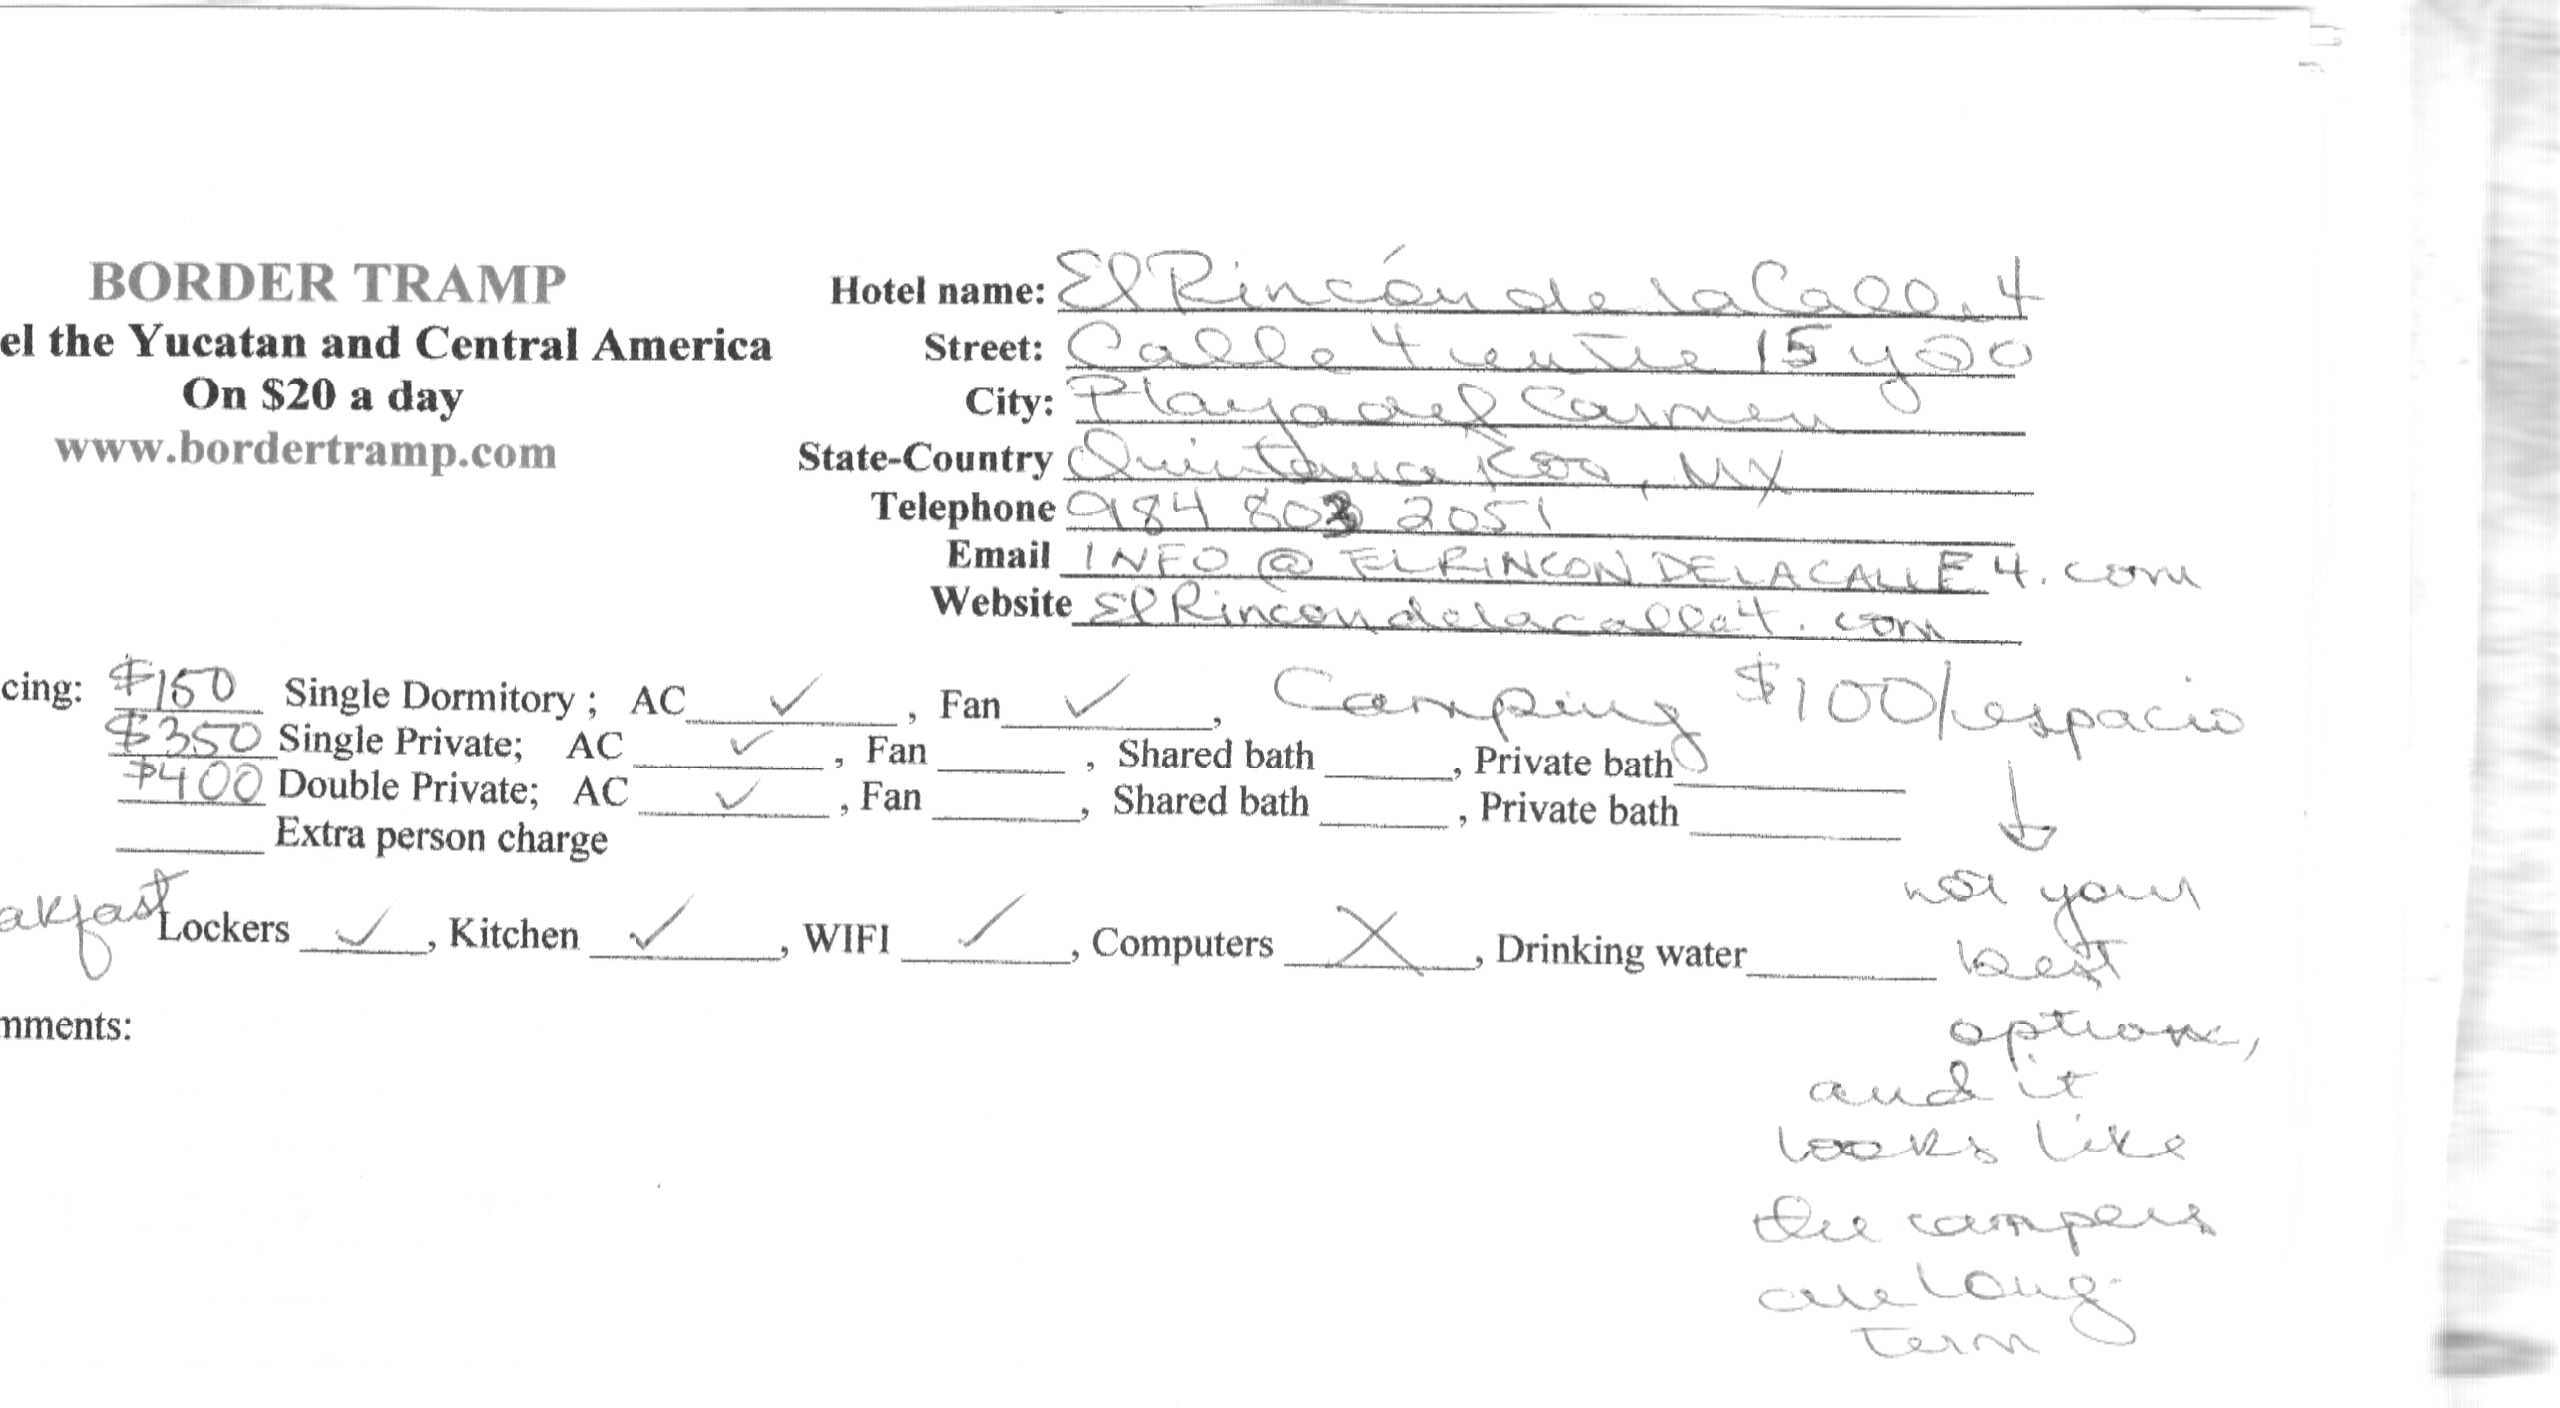 BORDER TRAMP
el the Yucatan and Central America
On $20 a day
www.bordertramp.com
Hotel name: El Rincón de la Calle 4
Street: Calle 4 entre 15 y 20
City: Playa del Carmen
State-Country Quintana Roo, MX
Telephone 984 803 2051
Email INFO@ELRINCONDELACALLE4.com
Website ElRincondelacalle4.com
cing: $150 Single Dormitory ; AC ✓, Fan ✓, Camping $100/espacio
$350 Single Private; AC ✓, Fan ______, Shared bath ______, Private bath ______
$400 Double Private; AC ✓, Fan ______, Shared bath ______, Private bath ______
______ Extra person charge
akfast Lockers ✓, Kitchen ✓, WIFI ✓, Computers X, Drinking water ______
mments:
↓
not your
best
option,
and it
looks like
the campers
are long-
term